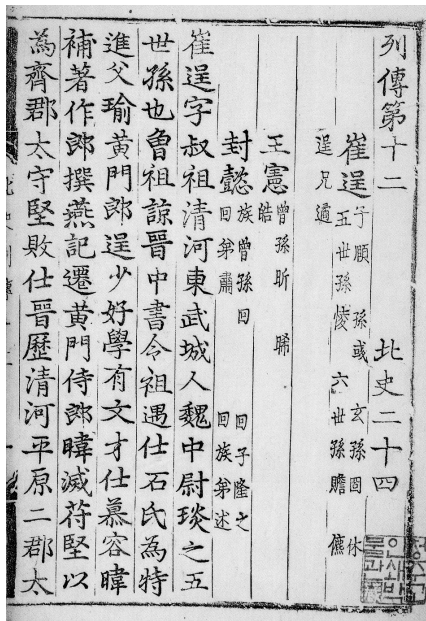 列傳第十二 北史二十四
崔逞 子順 孫或 玄孫冏 休
五世孫㥄 六世孫贍 儦
逞兄遹
王憲 曾孫昕 晞
皓
封懿 族曾孫回 回子隆之
回弟肅 回族弟述
崔逞字叔祖清河東武城人魏中尉琰之五
世孫也魯祖諒晉中書令祖遇仕石氏為特
進父瑜黃門郎逞少好學有文才仕慕容暐
補著作郎撰燕記遷黃門侍郎暐滅苻堅以
為齊郡太守堅敗仕晉歷清河平原二郡太